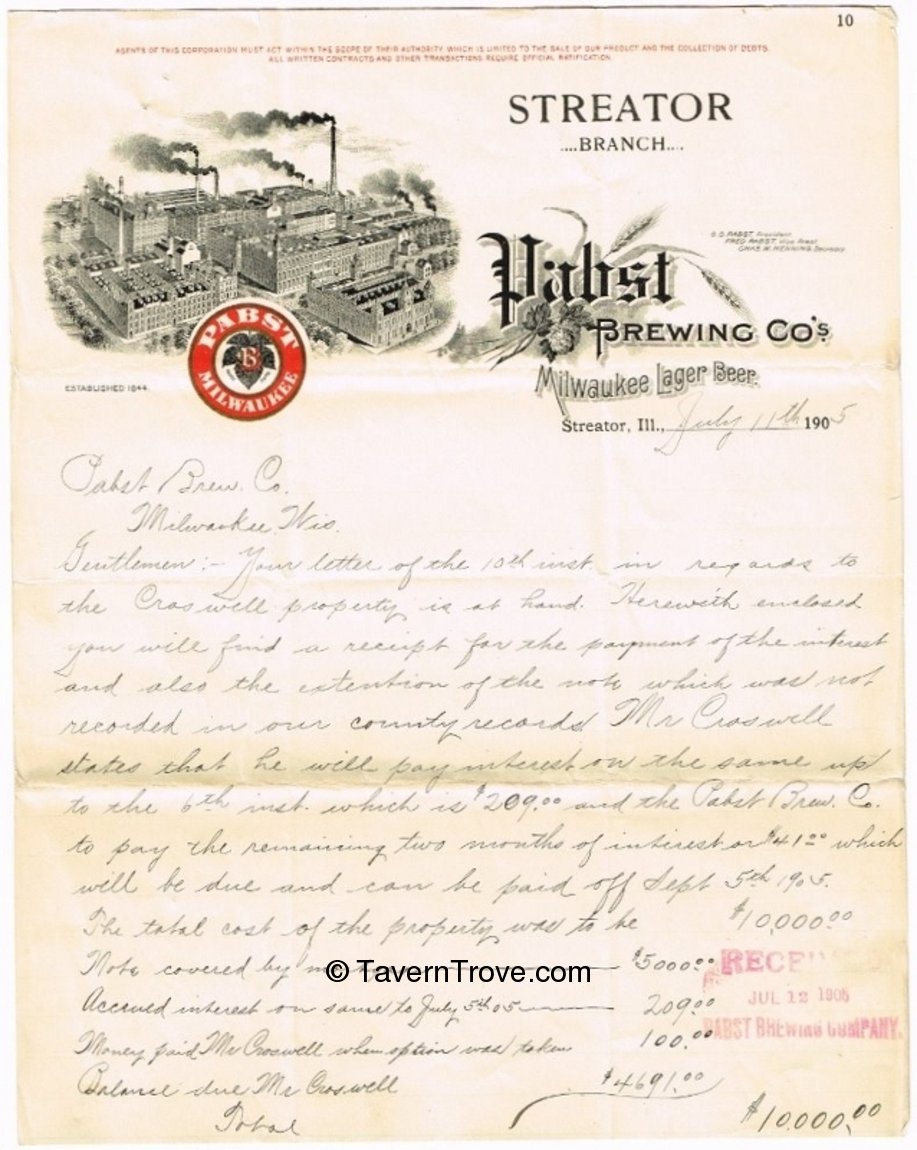 10
AGENTS OF THIS CORPORATION MUST ACT WITHIN THE SCOPE OF THEIR AUTHORITY WHICH IS LIMITED TO THE SALE OF OUR PRODUCT AND THE COLLECTION OF DEBTS.
ALL WRITTEN CONTRACTS AND OTHER TRANSACTIONS REQUIRE OFFICIAL RATIFICATION.
STREATOR
....BRANCH....
G. G. PABST, President.
FRED PABST, Vice Prest.
CHAS. W. HENNING, Secretary
Pabst
BREWING CO'S
Milwaukee Lager Beer.
PABST
B
MILWAUKEE
ESTABLISHED 1844.
Streator, Ill., July 11th 1905
Pabst Brew. Co.
Milwaukee, Wis.
Gentlemen:- Your letter of the 10th inst. in regards to
the Croswell property is at hand. Herewith enclosed
you will find a receipt for the payment of the interest
and also the extention of the note which was not
recorded in our county records. Mr Croswell
states that he will pay interest on the same up
to the 6th inst. which is $209.00 and the Pabst Brew. Co.
to pay the remaining two months of interest or $41.00 which
will be due and can be paid off Sept 5th 1905.
The total cost of the property was to be $10,000.00
Note covered by $5000.00
Accrued interest on same to July 5th 05 209.00
Money paid Mr Croswell when option was taken 100.00
Balance due Mr Croswell $4691.00
Total $10,000.00
RECEIVED
JUL 12 1905
PABST BREWING COMPANY.
© TavernTrove.com